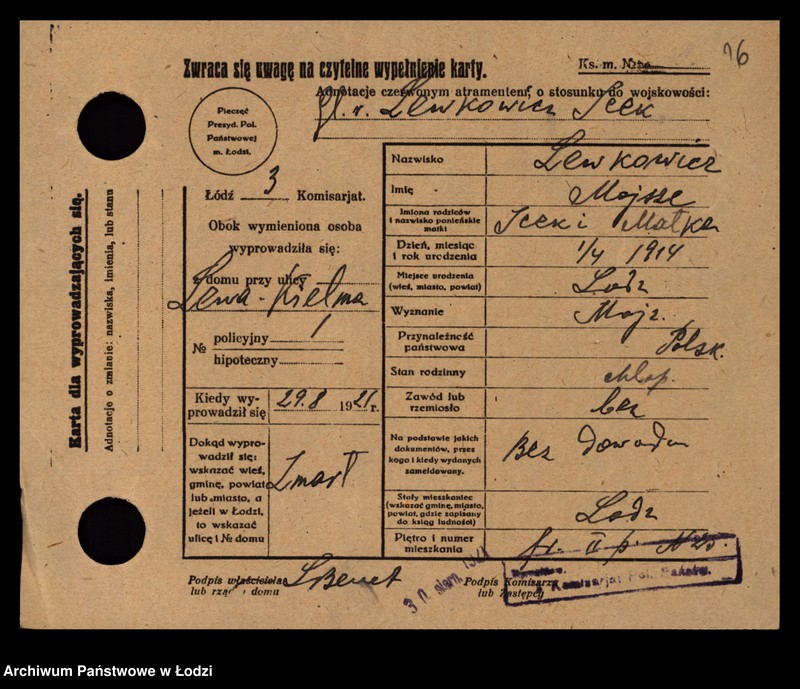 16
Zwraca się uwagę na czytelne wypełnienie karty.
Ks. m. №
Adnotacje czerwonym atramentem, o stosunku do wojskowości:
Lewkowicz Icek
Pieczęć
Prezyd. Pol.
Państwowej
m. Łodzi.
Łódź 3 Komisarjat.
Obok wymieniona osoba
wyprowadziła się:
z domu przy ulicy
Lewa-Kielma
№ policyjny 1
hipoteczny
Kiedy wy-
prowadził się 29.8 1921 r.
Dokąd wypro-
wadził się:
wskazać wieś,
gminę, powiat
lub miasto, a
jeżeli w Łodzi,
to wskazać
ulicę i № domu
Zmarł
Nazwisko Lewkowicz
Imię Mojsze
Imiona rodziców
i nazwisko panieńskie
matki
Icek i Małka
Dzień, miesiąc
i rok urodzenia
1/4 1914
Miejsce urodzenia
(wieś, miasto, powiat)
Lodz
Wyznanie Mojż.
Przynależność
państwowa
Polsk.
Stan rodzinny chłop.
Zawód lub
rzemiosło
bez
Na podstawie jakich
dokumentów, przez
kogo i kiedy wydanych
zameldowany.
Bez dowodu
Stały mieszkaniec
(wskazać gminę, miasto,
powiat, gdzie zapisany
do ksiąg ludności)
Lodz
Piętro i numer
mieszkania
fr. II p.
Podpis właściciela
lub rządcy domu
Podpis Komisarza
lub Zastępcy
Komisarjat Pol. Państw.
Karta dla wyprowadzających się.
Adnotacje o zmianie: nazwiska, imienia, lub stanu
Archiwum Państwowe w Łodzi